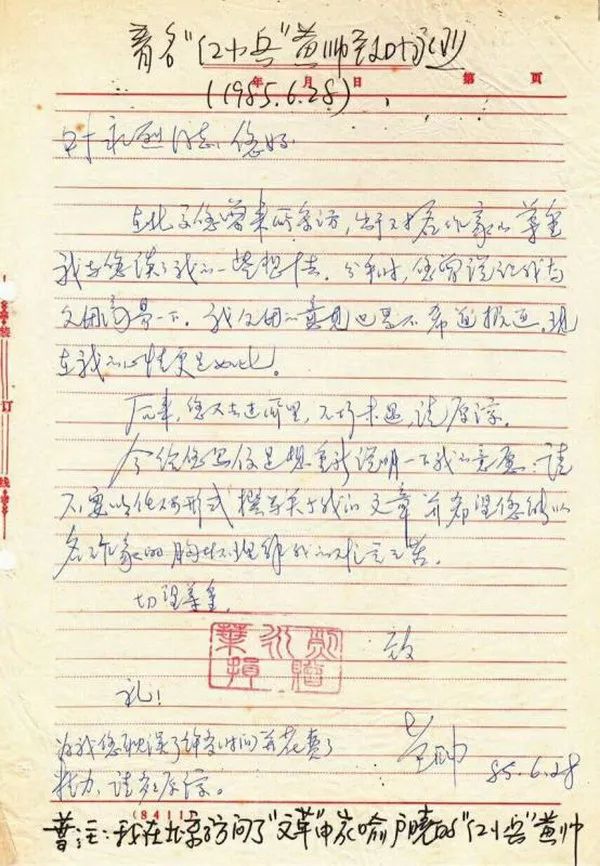 著名“红小兵”黄帅致叶永烈
年 月 日 第 页
(1985.6.28)
叶永烈同志，您好
在北京您曾来所采访，出于对名作家的尊重
我与您谈了我的一些想法。分手时，您曾说让我与
父母商量一下。我父母的意见也是不希望报道。现
在我的心情更是如此。
后来，您又去过所里，不巧未遇，请原谅。
今给您写信是想重新说明一下我的意愿：请
不要以任何形式撰写关于我的文章，并希望您能以
名作家的胸怀理解我的难言之苦。
切望尊重。
致
礼！
叶永烈
捐赠
黄帅
85.6.28
为我您耽误了许多时间并花费了
精力，请多原谅。
装
订
线
(8411)
普注：我在北京访问了“文革”中家喻户晓的“红小兵”黄帅